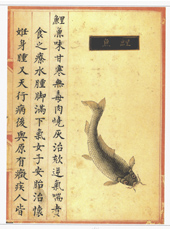 鯉魚味甘寒無毒肉燒灰治欬逆氣喘
食之療水腫脚滿下氣女子安胎治懷
姙身腫又天行病後與原有癥疾人皆